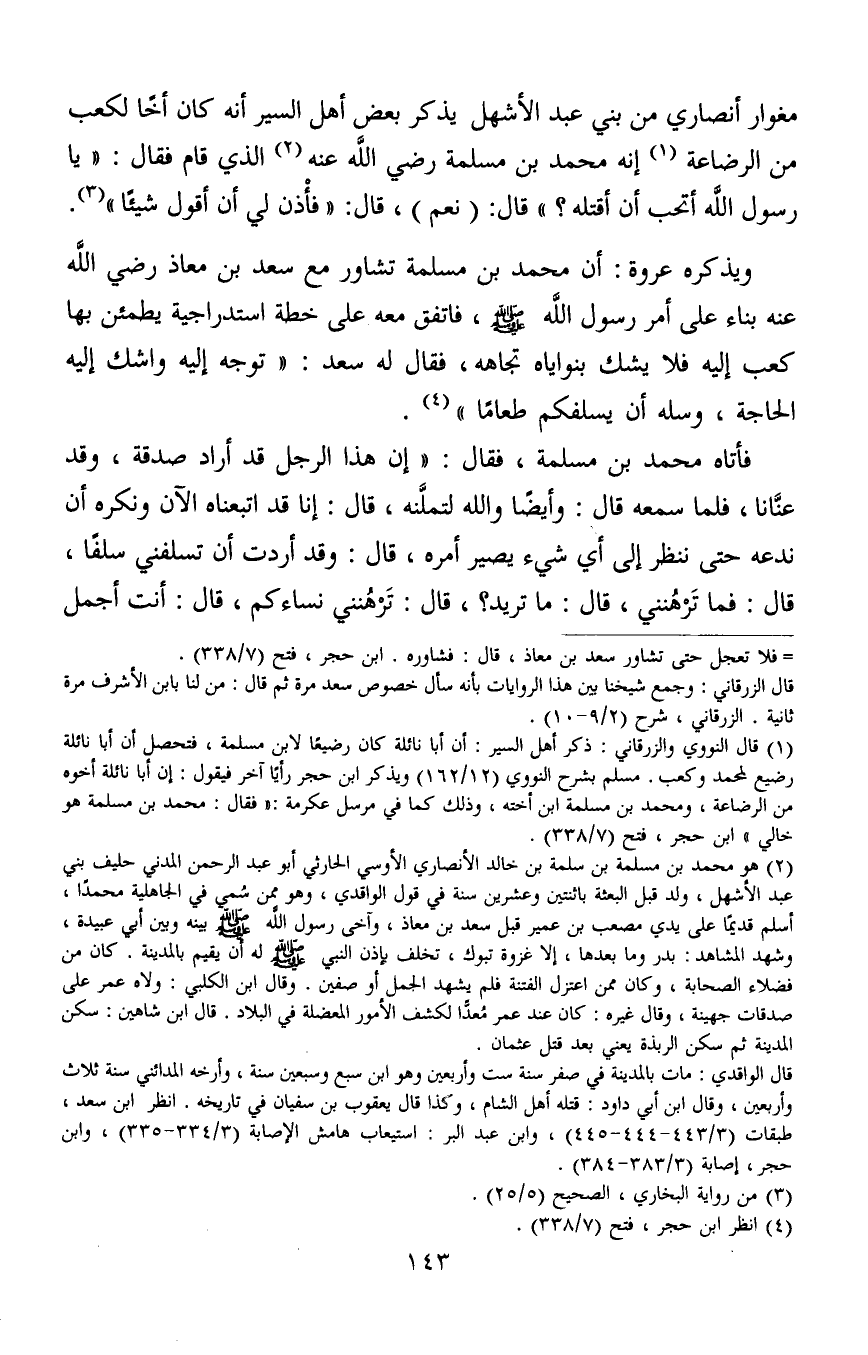 مغوار أنصاري من بني عبد الأشهل يذكر بعض أهل السير أنه كان أخًا لكعب
من الرضاعة (١) إنه محمد بن مسلمة رضي اللَّه عنه (٢) الذي قام فقال : « يا
رسول اللَّه أتحب أن أقتله ؟ » قال: ( نعم ) ، قال: « فأْذن لي أن أقول شيئًا »(٣).
ويذكره عروة : أن محمد بن مسلمة تشاور مع سعد بن معاذ رضي اللَّه
عنه بناء على أمر رسول اللَّه ﷺ ، فاتفق معه على خطة استدراجية يطمئن بها
كعب إليه فلا يشك بنواياه تجاهه ، فقال له سعد : « توجه إليه واشك إليه
الحاجة ، وسله أن يسلفكم طعامًا » (٤) .
فأتاه محمد بن مسلمة ، فقال : « إن هذا الرجل قد أراد صدقة ، وقد
عنَّانا ، فلما سمعه قال : وأيضًا والله لتملَّنه ، قال : إنا قد اتبعناه الآن ونكره أن
ندعه حتى ننظر إلى أي شيء يصير أمره ، قال : وقد أردت أن تسلفني سلفًا ،
قال : فما تَرْهُنني ، قال : ما تريد؟ ، قال : تَرْهُنني نساءكم ، قال : أنت أجمل
= فلا تعجل حتى تشاور سعد بن معاذ ، قال : فشاوره . ابن حجر ، فتح (٣٣٨/٧) .
قال الزرقاني : وجمع شيخنا بين هذا الروايات بأنه سأل خصوص سعد مرة ثم قال : من لنا بابن الأشرف مرة
ثانية . الزرقاني ، شرح (٩/٢-١٠) .
(١) قال النووي والزرقاني : ذكر أهل السير : أن أبا نائلة كان رضيعًا لابن مسلمة ، فتحصل أن أبا نائلة
رضيع لمحمد وكعب . مسلم بشرح النووي (١٦٢/١٢) ويذكر ابن حجر رأيًا آخر فيقول : إن أبا نائلة أخوه
من الرضاعة ، ومحمد بن مسلمة ابن أخته ، وذلك كما في مرسل عكرمة :« فقال : محمد بن مسلمة هو
خالي » ابن حجر ، فتح (٣٣٨/٧) .
(٢) هو محمد بن مسلمة بن سلمة بن خالد الأنصاري الأوسي الحارثي أبو عبد الرحمن المدني حليف بني
عبد الأشهل ، ولد قبل البعثة باثنتين وعشرين سنة في قول الواقدي ، وهو ممن سُمي في الجاهلية محمدًا ،
أسلم قديمًا على يدي مصعب بن عمير قبل سعد بن معاذ ، وآخى رسول اللَّه ﷺ بينه وبين أبي عبيدة ،
وشهد المشاهد : بدر وما بعدها ، إلا غزوة تبوك ، تخلف بإذن النبي ﷺ له أن يقيم بالمدينة . كان من
فضلاء الصحابة ، وكان ممن اعتزل الفتنة فلم يشهد الجمل أو صفين . وقال ابن الكلبي : ولاه عمر على
صدقات جهينة ، وقال غيره : كان عند عمر مُعدًّا لكشف الأمور المعضلة في البلاد . قال ابن شاهين : سكن
المدينة ثم سكن الربذة يعني بعد قتل عثمان .
قال الواقدي : مات بالمدينة في صفر سنة ست وأربعين وهو ابن سبع وسبعين سنة ، وأرخه المدائني سنة ثلاث
وأربعين ، وقال ابن أبي داود : قتله أهل الشام ، وكذا قال يعقوب بن سفيان في تاريخه . انظر ابن سعد ،
طبقات (٤٤٣/٣-٤٤٤-٤٤٥) ، وابن عبد البر : استيعاب هامش الإصابة (٣٣٤/٣-٣٣٥) ، وابن
حجر ، إصابة (٣٨٣/٣-٣٨٤) .
(٣) من رواية البخاري ، الصحيح (٢٥/٥) .
(٤) انظر ابن حجر ، فتح (٣٣٨/٧) .
١٤٣